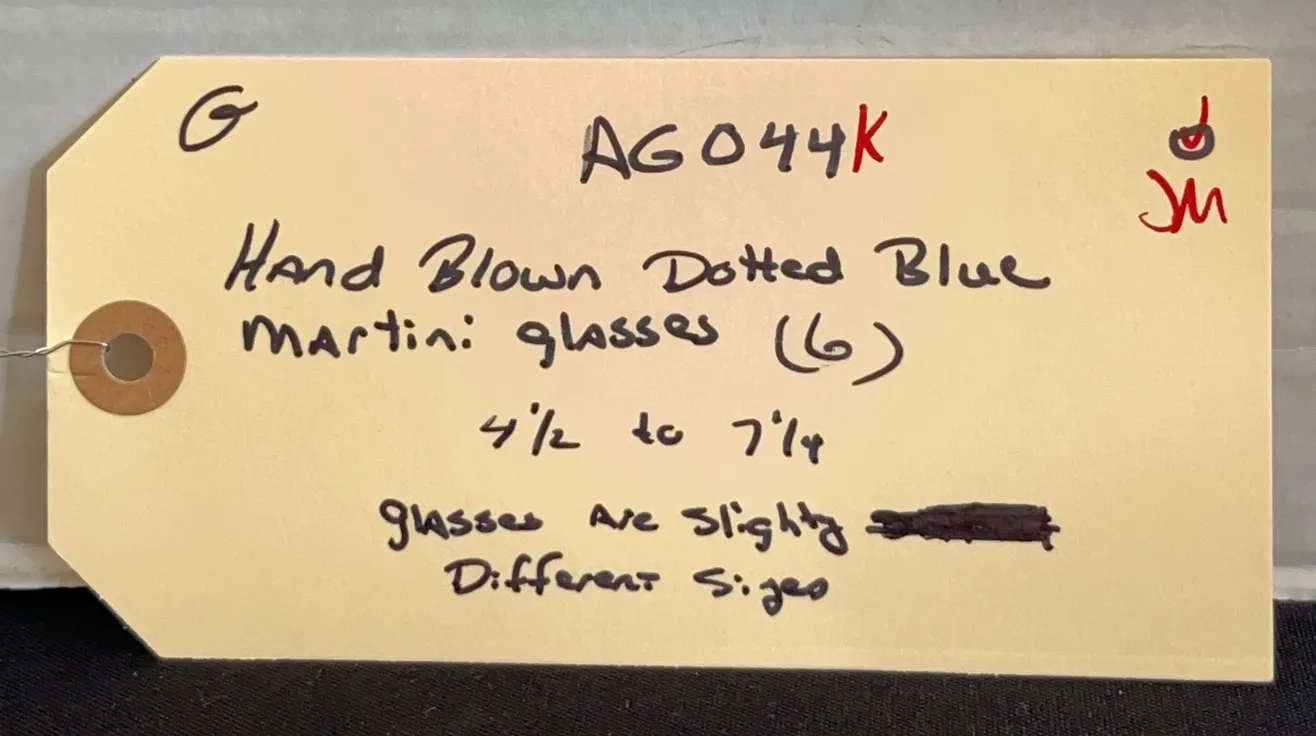 G
AG044K
JM
Hand Blown Dotted Blue
Martini glasses (6)
4 1/2 to 7 1/4
glasses Are slighty
Different Sizes